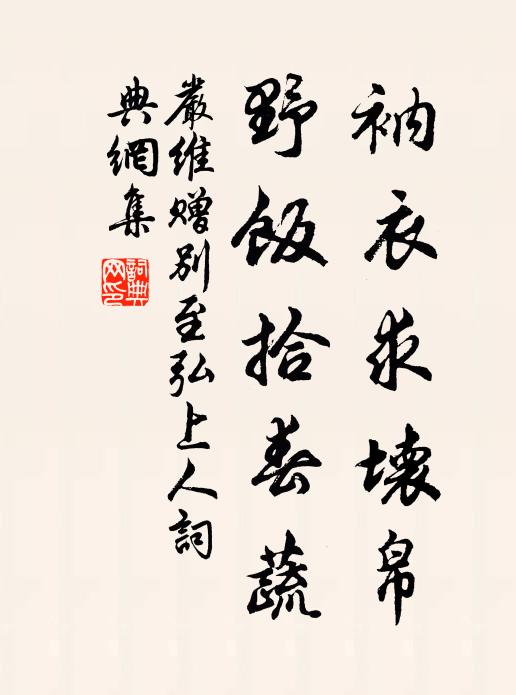 衲衣求壞帛
野飯拾春蔬
嚴維贈別至弘上人詞
典網集
詞典
网印